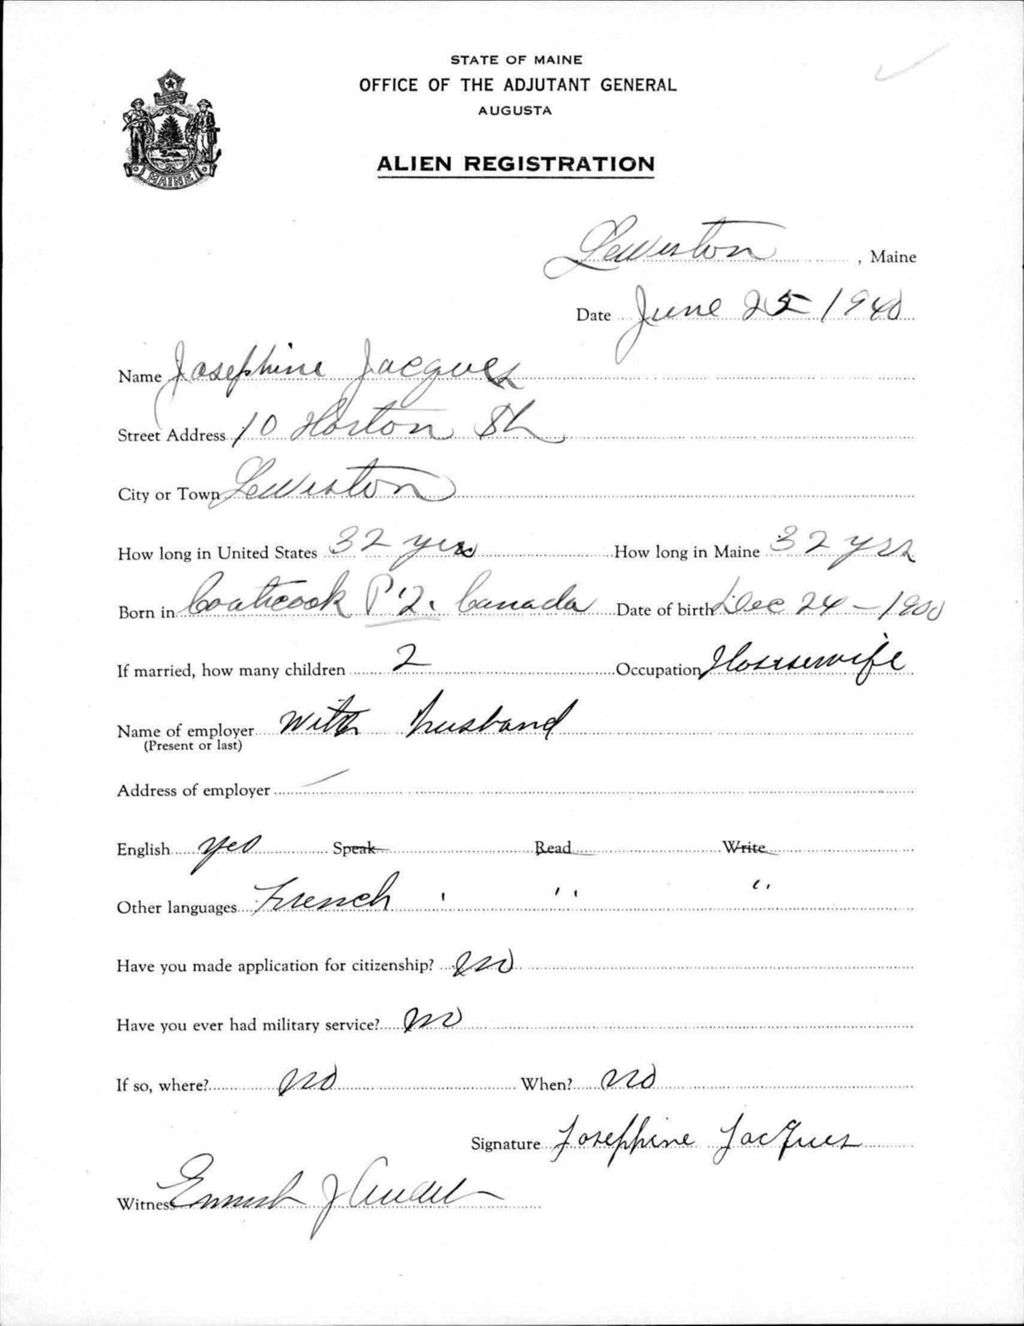 STATE OF MAINE
OFFICE OF THE ADJUTANT GENERAL
AUGUSTA
ALIEN REGISTRATION
MAINE
Lewiston, Maine
Date June 25 1940
Name Josephine Jacques
Street Address 10 Horton St
City or Town Lewiston
How long in United States 32 yrs How long in Maine 32 yrs
Born in Coaticook P.Q. Canada Date of birth Dec 24 - 1900
If married, how many children 2 Occupation Housewife
Name of employer with husband
(Present or last)
Address of employer
English yes Speak Read Write
Other languages French ' '' ''
Have you made application for citizenship? no
Have you ever had military service? no
If so, where? no When? no
Signature Josephine Jacques
Witness J